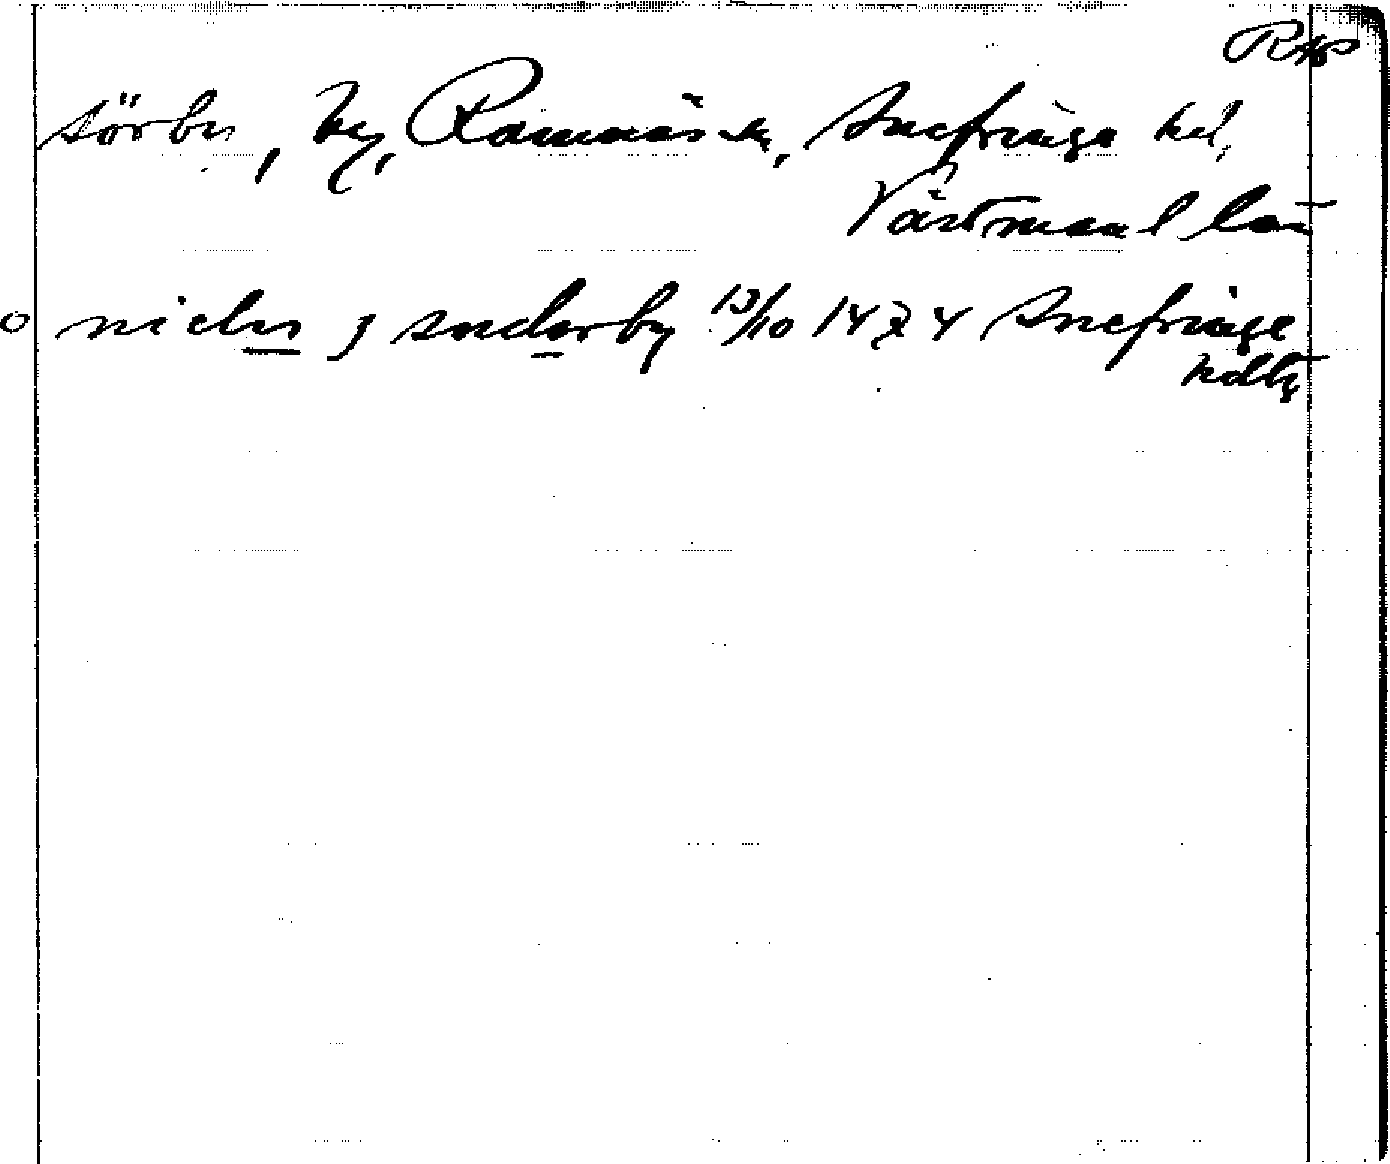 Sörby, by, Ramnäs sn, Snefringe hd,
Västmanl län
niclis j suderby 13/10 1474 Snefringe
hdtg